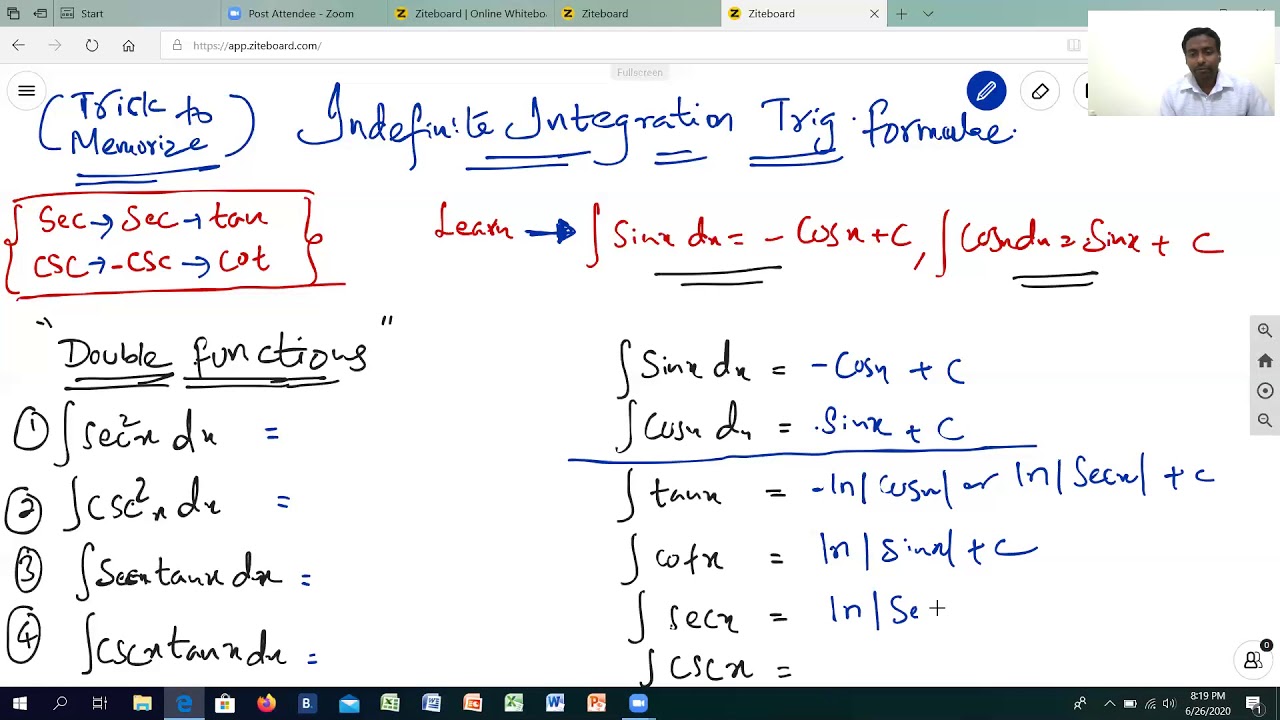 Start Page
Post Attendee - Zoom
Ziteboard | Online Whitebo
Ziteboard
Ziteboard
https://app.ziteboard.com/
Fullscreen
(Trick to Memorize) Indefinite Integration Trig. formulae.
Sec → Sec → tan
CSC → -CSC → Cot
Learn → ∫ Sinx dx = - Cosx + C, ∫ Cosx dx = Sinx + C
"Double functions"
① ∫ sec²x dx =
② ∫ CSC²x dx =
③ ∫ Secx tanx dx =
④ ∫ CSCx tanx dx =
∫ Sinx dx = -Cosx + C
∫ Cosx dx = Sinx + C
∫ tanx = -ln|Cosx| or ln|Secx| + C
∫ cotx = ln|Sinx| + C
∫ secx = ln|Se
∫ CSCx =
0
8:19 PM
6/26/2020
1